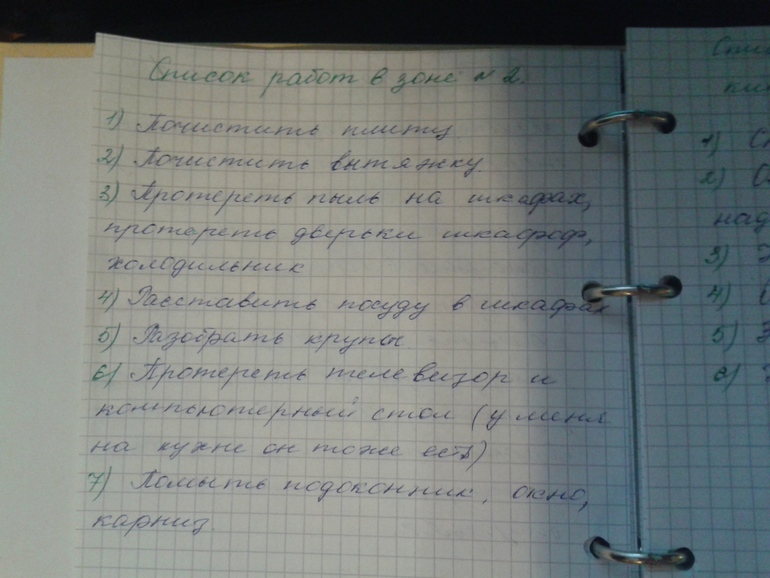 Список работ в зоне № 2.
1) Почистить плиту
2) Почистить вытяжку.
3) Протереть пыль на шкафах,
протереть дверьки шкафоф,
холодильник
4) Расставить посуду в шкафах
5) Разобрать крупы.
6) Протереть телевизор и
компьютерный стол (у меня
на кухне он тоже есть)
7) Помыть подоконник, окно,
карниз.
1)
2)
над
3)
4)
5)
6)